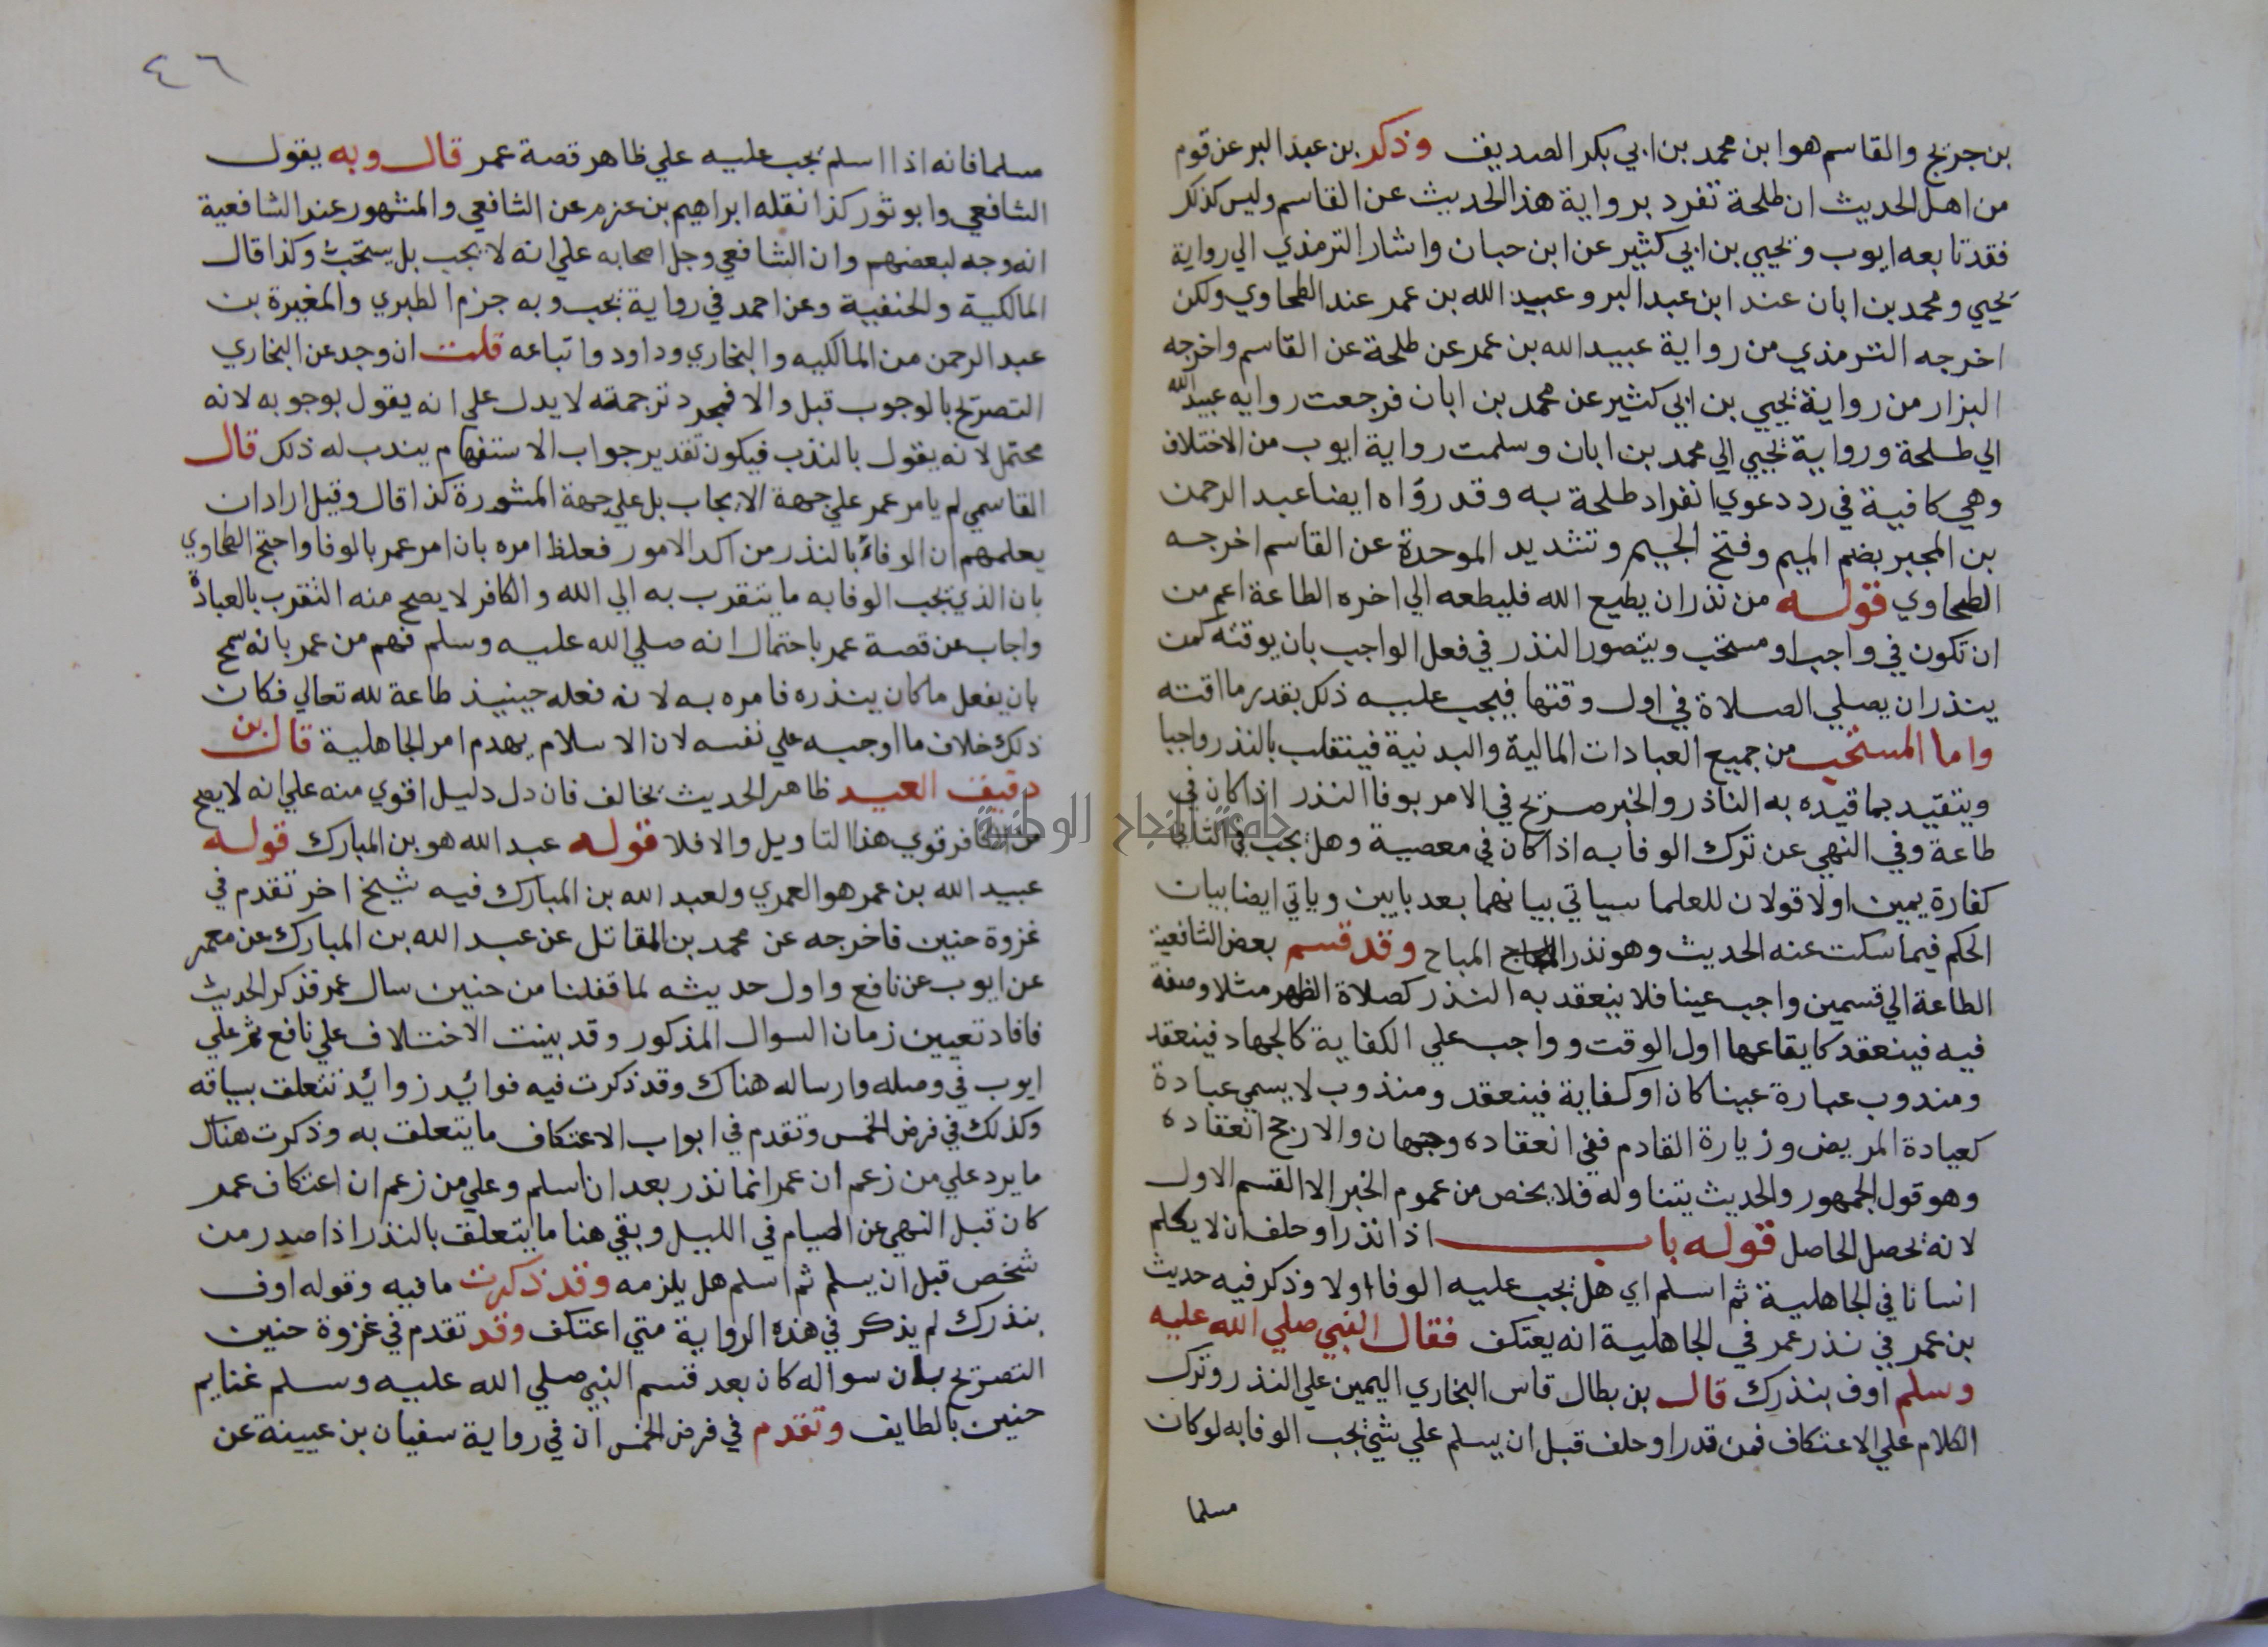 بن جريج والقاسم هو ابن محمد بن ابي بكر الصديق وذكر بن عبد البر عن قوم
من اهل الحديث ان طلحة تفرد برواية هذا الحديث عن القاسم وليس كذلك
فقد تابعه ايوب ويحيي بن ابي كثير عن ابن حبان واشار الترمذي الي رواية
يحيي ومحمد بن ابان عند ابن عبد البر وعبيد الله بن عمر عند الطحاوي ولكن
اخرجه الترمذي من رواية عبيد الله بن عمر عن طلحة عن القاسم واخرجه
البزار من رواية يحيي بن ابي كثير عن محمد بن ابان فرجعت روايه عبيد الله
الي طلحة ورواية يحيي الي محمد بن ابان وسلمت رواية ايوب من الاختلاف
وهي كافية في رد دعوي انفراد طلحة به وقد رواه ايضا عبد الرحمن
بن المجبر بضم الميم وفتح الجيم وتشديد الموحدة عن القاسم اخرجه
الطحاوي قوله من نذر ان يطيع الله فليطعه الي اخره الطاعة اعم من
ان تكون في واجب او مستحب ويتصور النذر في فعل الواجب بان يوقته كمن
ينذر ان يصلي الصلاة في اول وقتها فيجب عليه ذلك بقدر ما اقته
واما المستحب من جميع العبادات المالية والبدنية فينقلب بالنذر واجبا
ويتقيد بما قيده به الناذر والخبر صريح في الامر بوفا النذر اذا كان في
طاعة وفي النهي عن ترك الوفا به اذا كان في معصية وهل يجب في الثاني
كفارة يمين اولا قولان للعلما سياتي بيانهما بعد بابين وياتي ايضا بيان
الحكم فيما سكت عنه الحديث وهو نذر المباح وقد قسم بعض الشافعية
الطاعة الي قسمين واجب عينا فلا ينعقد به النذر كصلاة الظهر مثلا وصفة
فيه فينعقد كايقاعها اول الوقت وواجب علي الكفاية كالجهاد فينعقد
ومندوب عبارة عينا كان او كفاية فينعقد ومندوب لا يسمي عبادة
كعيادة المريض وزيارة القادم ففي انعقاده وجهان والارجح انعقاده
وهو قول الجمهور والحديث يتناوله فلا يخص من عموم الخبر الا القسم الاول
لانه تحصل الحاصل قوله باب اذا نذر او حلف ان لا يكلم
انسانا في الجاهلية ثم اسلم اي هل يجب عليه الوفا اولا وذكر فيه حديث
بن عمر في نذر عمر في الجاهلية انه يعتكف فقال النبي صلي الله عليه
وسلم اوف بنذرك قال بن بطال قاس البخاري اليمين علي النذر وترك
الكلام علي الاعتكاف فمن قدر او حلف قبل ان يسلم علي شي يجب الوفا به لو كان
مسلما
٤٦
مسلما فانه اذا اسلم يجب عليه علي ظاهر قصة عمر قال وبه يقول
الشافعي وابو ثور كذا نقله ابراهيم بن عزم عن الشافعي والمشهور عند الشافعية
انه وجه لبعضهم وان الشافعي وجل اصحابه علي انه لا يجب بل يستحب وكذا قال
المالكية والحنفية وعن احمد في رواية يجب وبه جزم الطبري والمغيرة بن
عبد الرحمن من المالكيه والبخاري وداود واتباعه قلت ان وجد عن البخاري
التصريح بالوجوب قبل والا فمجرد ترجمته لا يدل علي انه يقول بوجوبه لانه
محتمل لانه يقول بالندب فيكون تقدير جواب الاستفهام يندب له ذلك قال
القاسمي لم يامر عمر علي جهة الايجاب بل علي جهة المشورة كذا قال وقيل اراد ان
يعلمهم ان الوفاء بالنذر من اكد الامور فغلظ امره بان امر عمر بالوفا واحتج الطحاوي
بان الذي يجب الوفا به ما يتقرب به الي الله والكافر لا يصح منه التقرب بالعبادة
واجاب عن قصة عمر باحتمال انه صلي الله عليه وسلم فهم من عمر بانه سمح
بان يفعل ما كان ينذره فامره به لانه فعله حينيذ طاعة لله تعالي فكان
ذلك خلاف ما اوجبه علي نفسه لان الاسلام يهدم امر الجاهلية قال بن
دقيق العيد ظاهر الحديث يخالف فان دل دليل اقوي منه علي انه لا يصح
من الكافر قوي هذا التاويل والا فلا قوله عبد الله هو بن المبارك قوله
عبيد الله بن عمر هو العمري ولعبد الله بن المبارك فيه شيخ اخر تقدم في
غزوة حنين فاخرجه عن محمد بن المقاتل عن عبد الله بن المبارك عن معمر
عن ايوب عن نافع واول حديثه لما قفلنا من حنين سال عمر فذكر الحديث
فافاد تعيين زمان السوال المذكور وقد بينت الاختلاف علي نافع ثم علي
ايوب في وصله وارساله هناك وقد ذكرت فيه فوائد زوائد تتعلق بسياقه
وكذلك في فرض الخمس وتقدم في ابواب الاعتكاف ما يتعلق به وذكرت هناك
ما يرد علي من زعم ان عمر انما نذر بعد ان اسلم وعلي من زعم ان اعتكاف عمر
كان قبل النهي عن الصيام في الليل وبقي هنا ما يتعلق بالنذر اذا صدر من
شخص قبل ان يسلم ثم اسلم هل يلزمه وقد ذكرت ما فيه وقوله اوف
بنذرك لم يذكر في هذه الرواية متي اعتكف وقد تقدم في غزوة حنين
التصريح بان سواله كان بعد قسم النبي صلي الله عليه وسلم غنايم
حنين بالطايف وتقدم في فرض الخمس ان في رواية سفيان بن عيينة عن
جامعة النجاح الوطنية